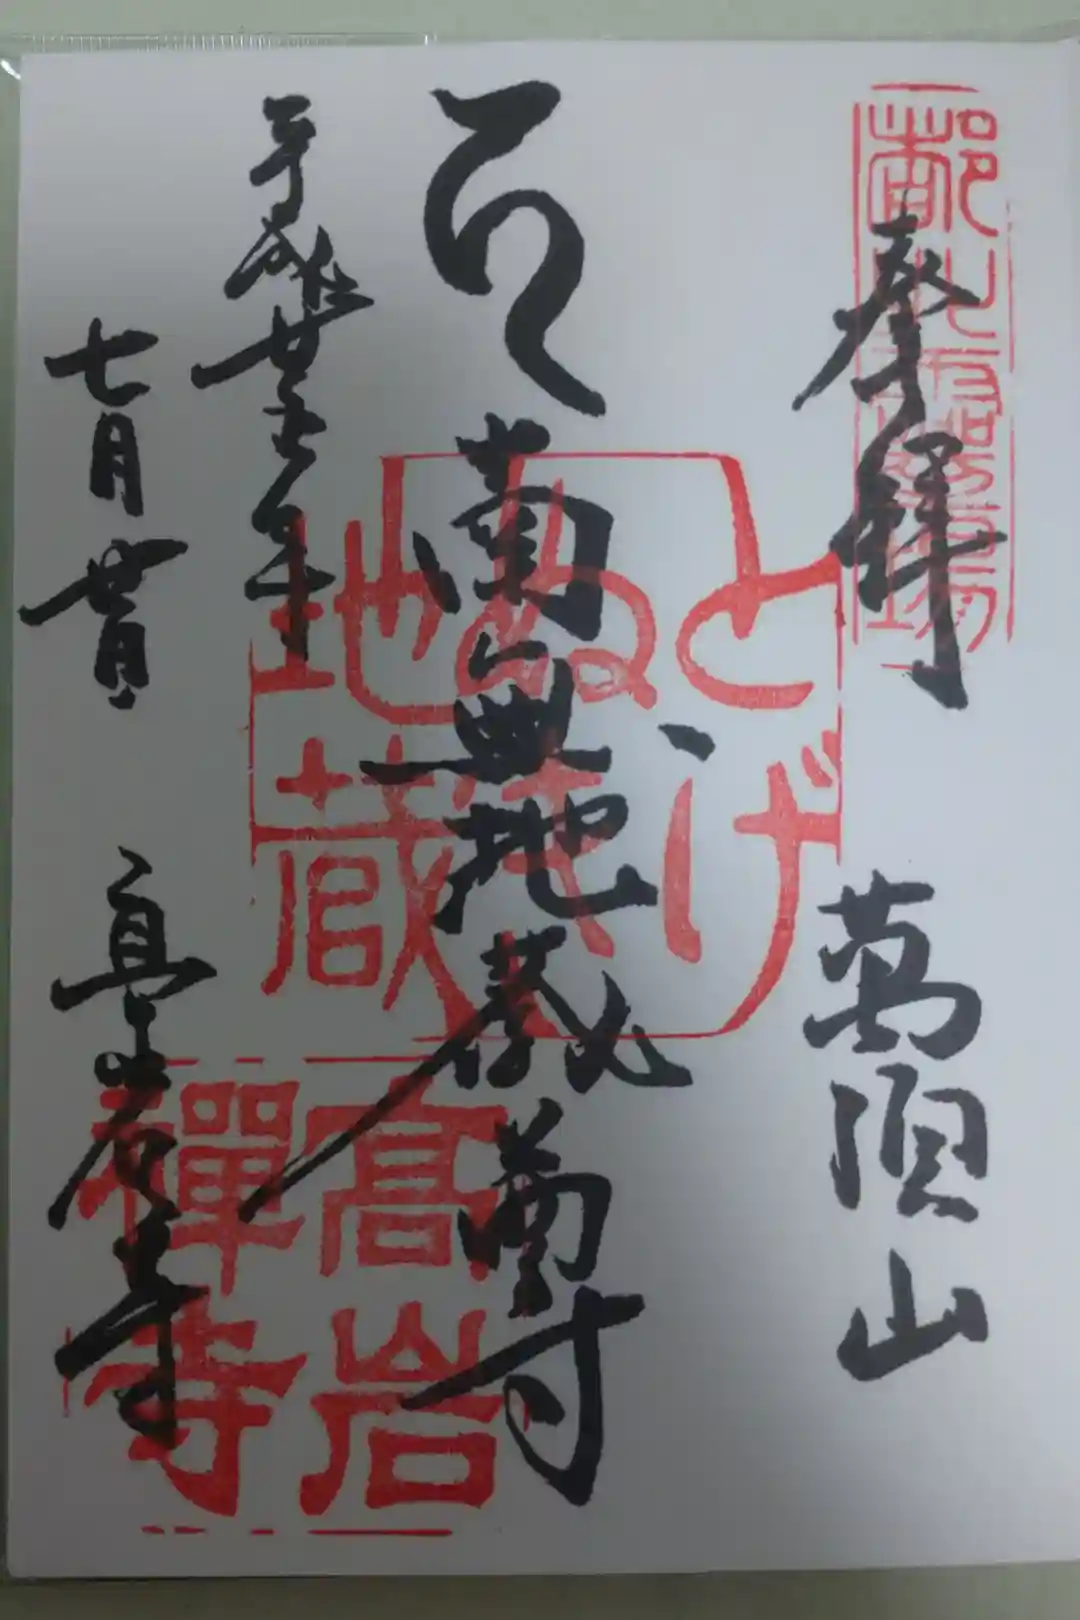 奉拝
萬頂山
南無地蔵尊
平成廿五年
七月
高岩寺
とげ
ぬき
地蔵
高岩
禪寺